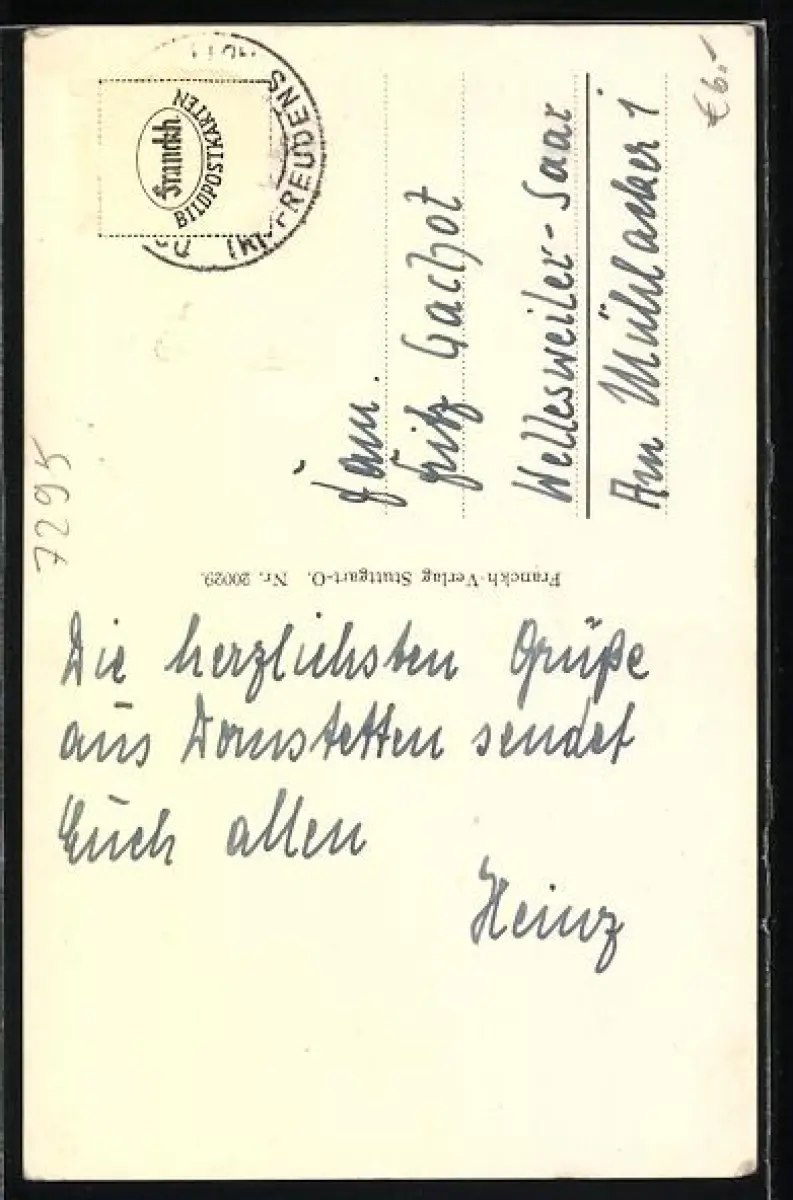 Franckh
BILDPOSTKARTEN
FREUDENS
€ 6.-
Fam.
Fritz Gachot
Wellesweiler-Saar
Am Mühlacker 1
7295
Franckh-Verlag Stuttgart-O. Nr. 20029.
Die herzlichsten Grüße
aus Dornstetten sendet
Euch allen
Heinz